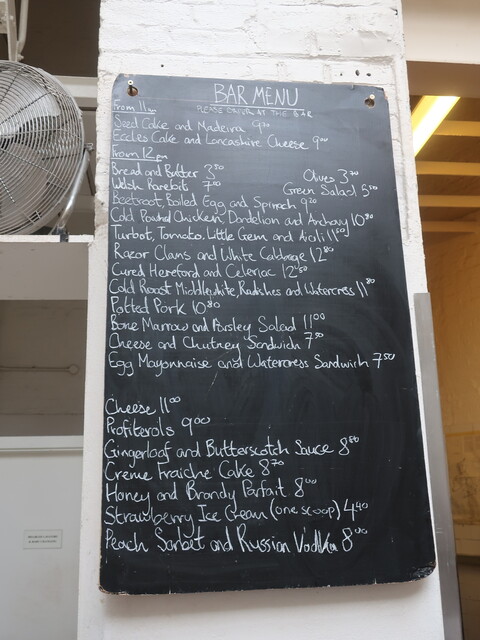 BAR MENU
From 11am PLEASE ORDER AT THE BAR
Seed Cake and Madeira
Eccles Cake and Lancashire Cheese 9⁰⁰
From 12pm
Bread and Butter 3⁵⁰ Olives 3⁷⁰
Welsh Rarebit 7⁰⁰ Green Salad 5⁵⁰
Beetroot, Boiled Egg and Spinach 9²⁰
Cold Poached Chicken, Dandelion and Anchovy 10⁸⁰
Turbot, Tomato, Little Gem and Aioli 11⁵⁰
Razor Clams and White Cabbage 12⁸⁰
Cured Hereford and Celeriac 12⁶⁰
Cold Roast Middlewhite, Radishes and Watercress 11⁸⁰
Potted Pork 10⁸⁰
Bone Marrow and Parsley Salad 11⁰⁰
Cheese and Chutney Sandwich 7⁵⁰
Egg Mayonnaise and Watercress Sandwich 7⁵⁰
Cheese 11⁰⁰
Profiterols 9⁰⁰
Gingerloaf and Butterscotch Sauce 8⁸⁰
Creme Fraiche Cake 8⁷⁰
Honey and Brandy Parfait 8⁰⁰
Strawberry Ice Cream (one scoop) 4⁴⁰
Peach Sorbet and Russian Vodka 8⁰⁰